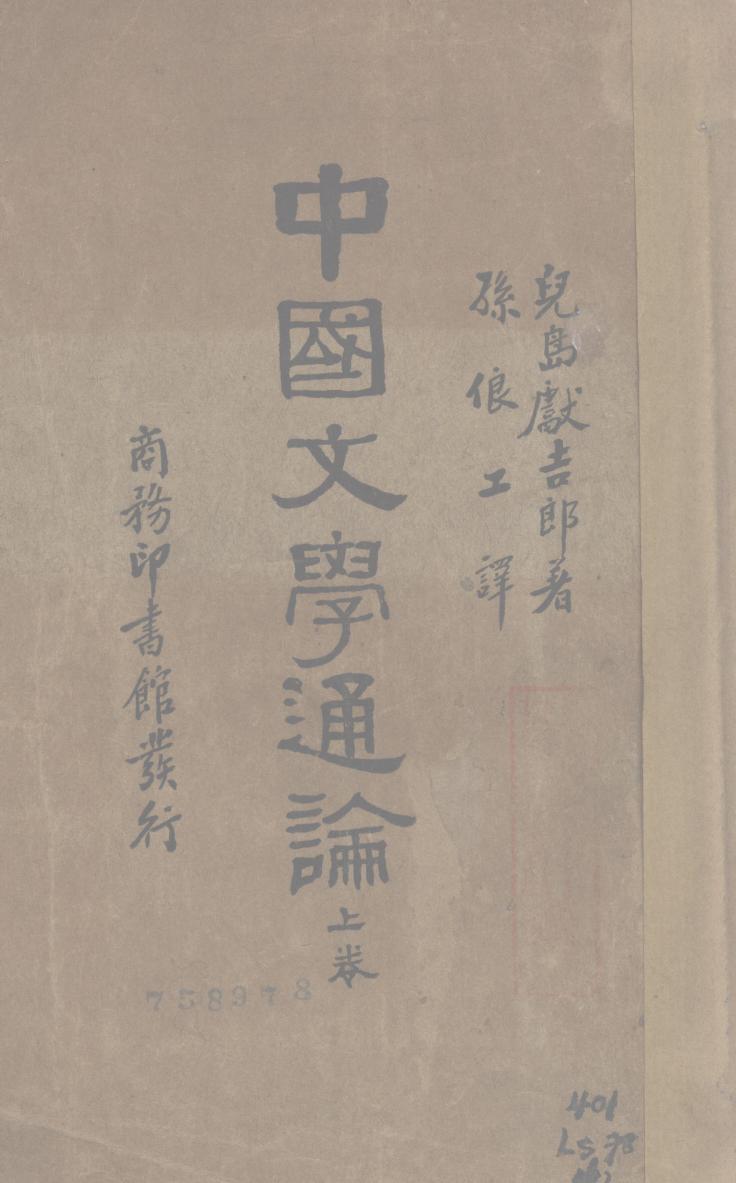 兒島獻吉郎著
孫俍工譯
中國文學通論
上卷
商務印書館發行
758978
401